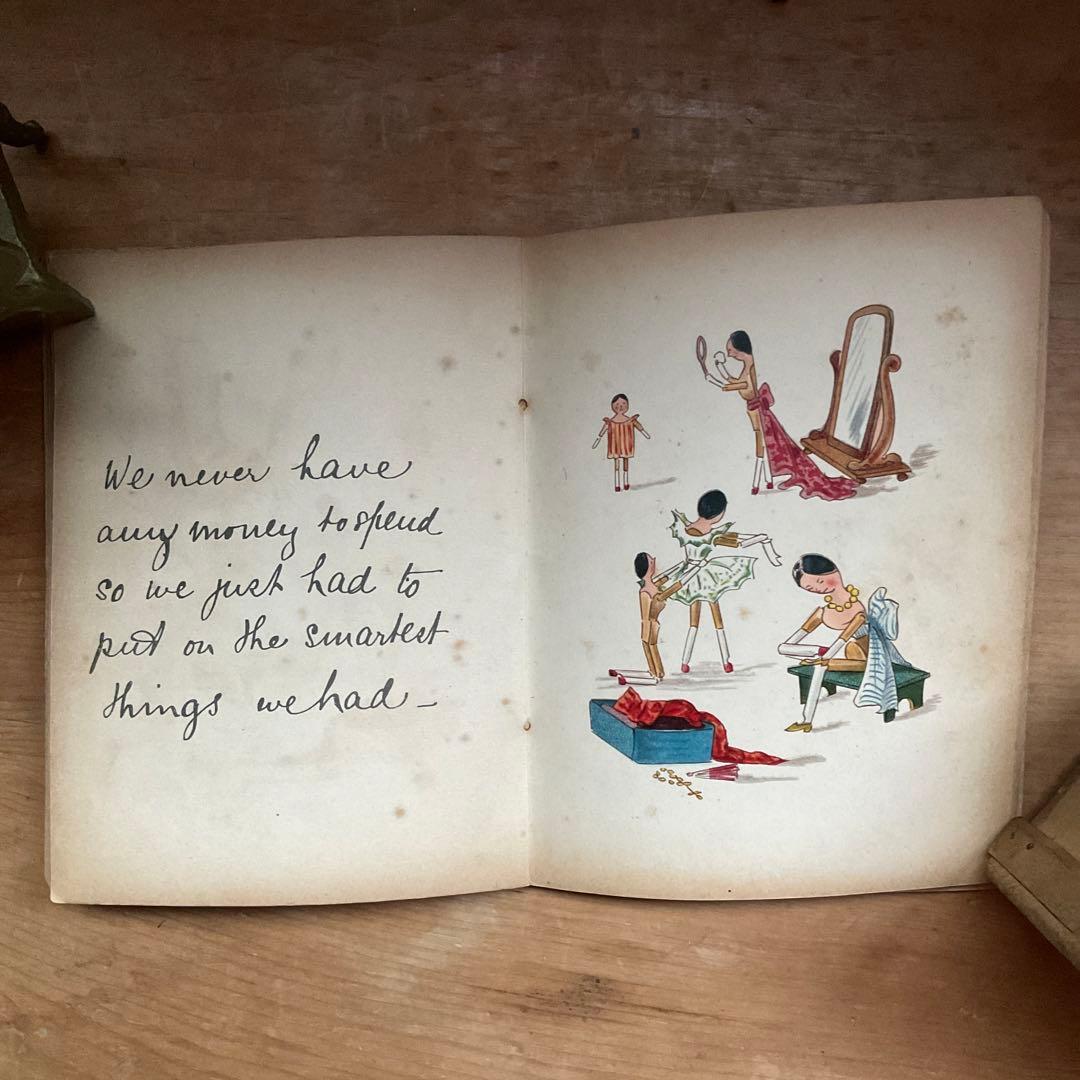 We never have
any money to spend
so we just had to
put on the smartest
things we had -